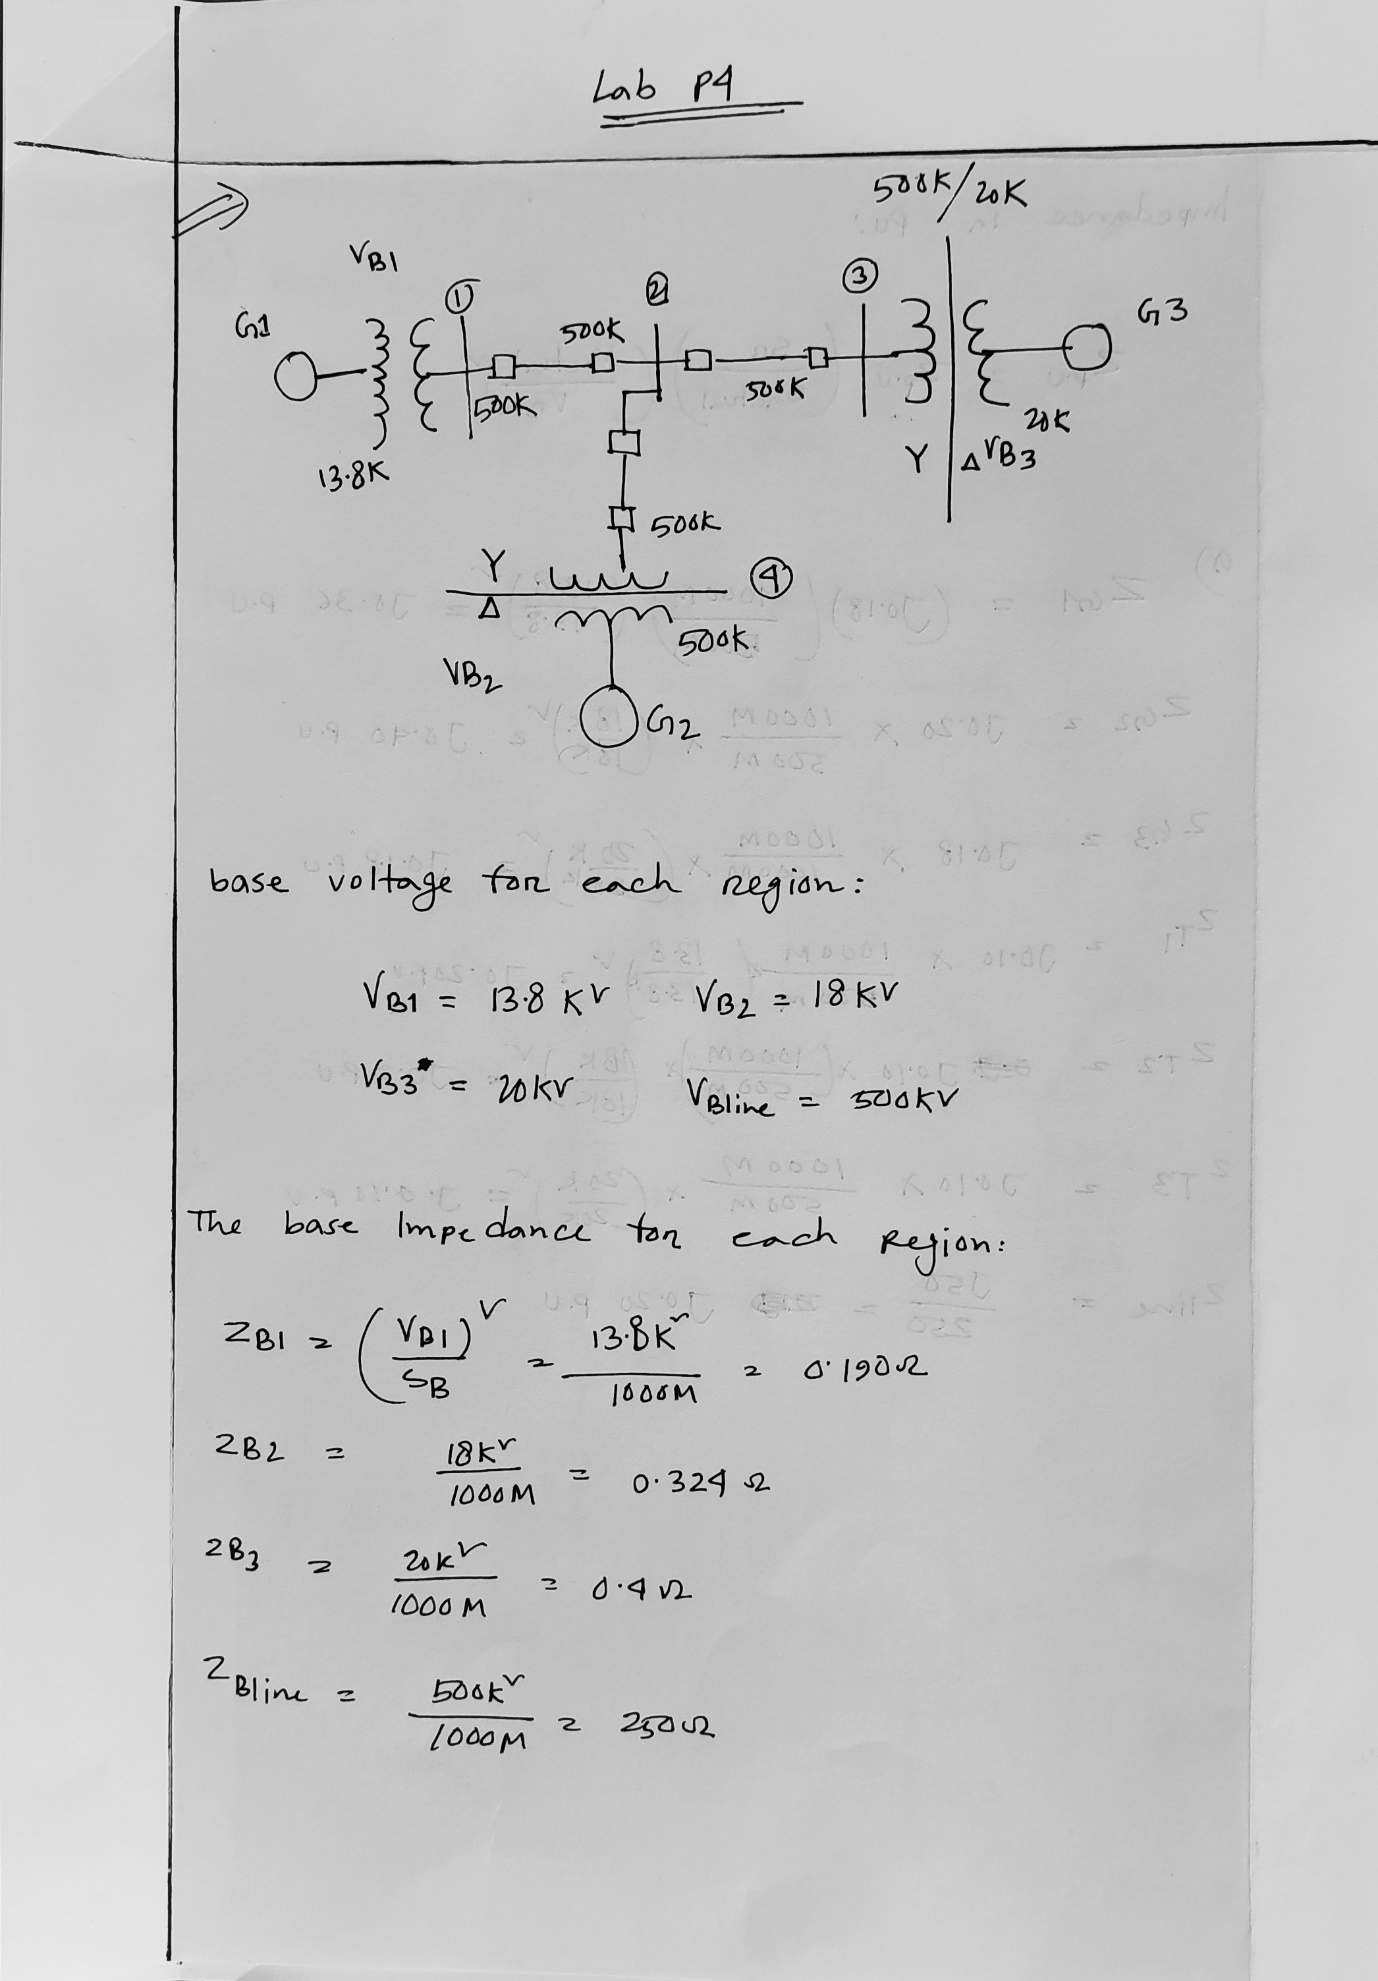 Lab P4
500K/20K
VB1
G1
①
②
③
G3
500K
500K
500K
20K
13.8K
Y
Δ
VB3
500K
Y
④
Δ
500K
VB2
G2
base voltage for each region:
VB1 = 13.8 KV VB2 = 18 KV
VB3 = 20KV VBline = 500KV
The base Impedance for each Region:
ZB1 = (VB1 / SB)² = 13.8K² / 1000M = 0.190Ω
ZB2 = 18K² / 1000M = 0.324 Ω
ZB3 = 20K² / 1000M = 0.4 Ω
ZBline = 500K² / 1000M = 250Ω